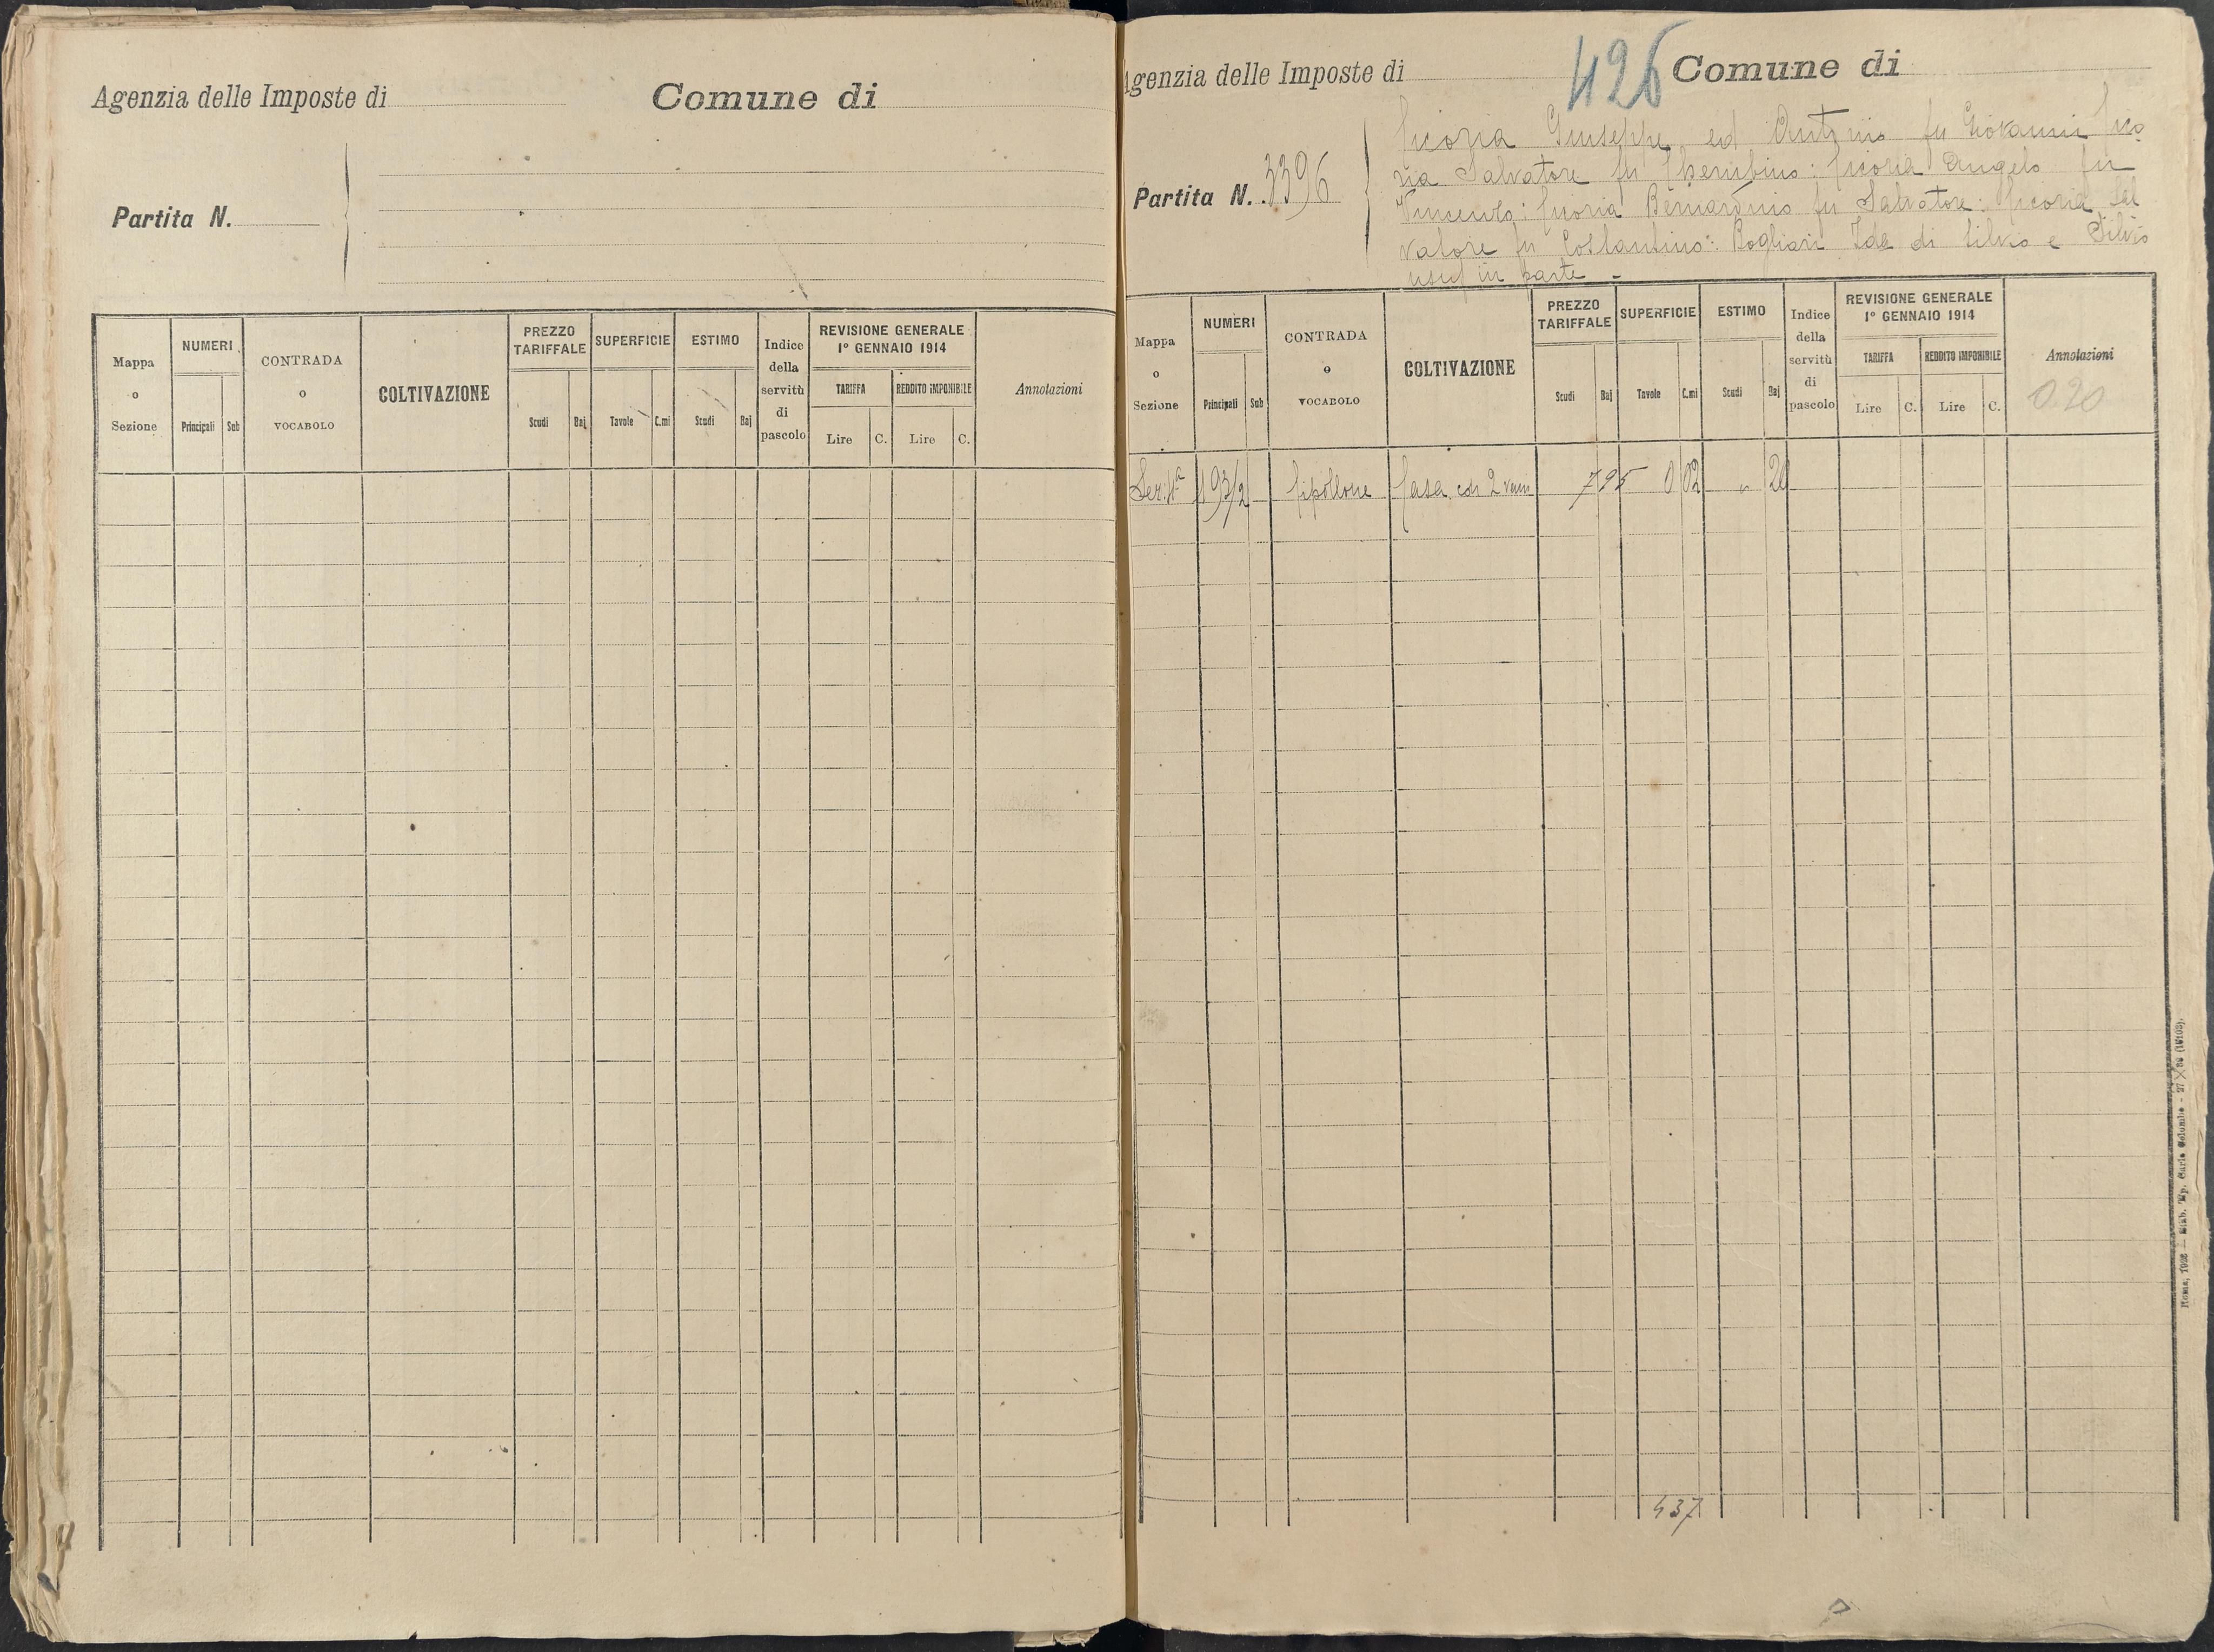 Agenzia delle Imposte di
Comune di
Partita N.
Mappa o Sezione
NUMERI
Principali
Sub
CONTRADA o VOCABOLO
COLTIVAZIONE
PREZZO TARIFFALE
Scudi
Baj
SUPERFICIE
Tavole
C.mi
ESTIMO
Scudi
Baj
Indice della servitù di pascolo
REVISIONE GENERALE
1º GENNAIO 1914
TARIFFA
Lire
C.
REDDITO IMPONIBILE
Lire
C.
Annotazioni
Agenzia delle Imposte di
426
Comune di
Partita N. 3396
Cicoria Giuseppe ed Antonio fu Giovanni Cico
ria Salvatore fu Cherubino: Cicoria Angelo fu
Vincenzo: Cicoria Bernardino fu Salvatore: Cicoria Sal
vatore fu Costantino: Bogliari Ida di Silvio e Silvio
usuf in parte -
Mappa o Sezione
NUMERI
Principali
Sub
CONTRADA o VOCABOLO
COLTIVAZIONE
PREZZO TARIFFALE
Scudi
Baj
SUPERFICIE
Tavole
C.mi
ESTIMO
Scudi
Baj
Indice della servitù di pascolo
REVISIONE GENERALE
1º GENNAIO 1914
TARIFFA
Lire
C.
REDDITO IMPONIBILE
Lire
C.
Annotazioni
0.20
Sez. 1ª 193/2 Cipollone Casa di 2 vani 7 95 0 02 " 20
437
Roma, 1926 — Stab. Tip. Carlo Colombo